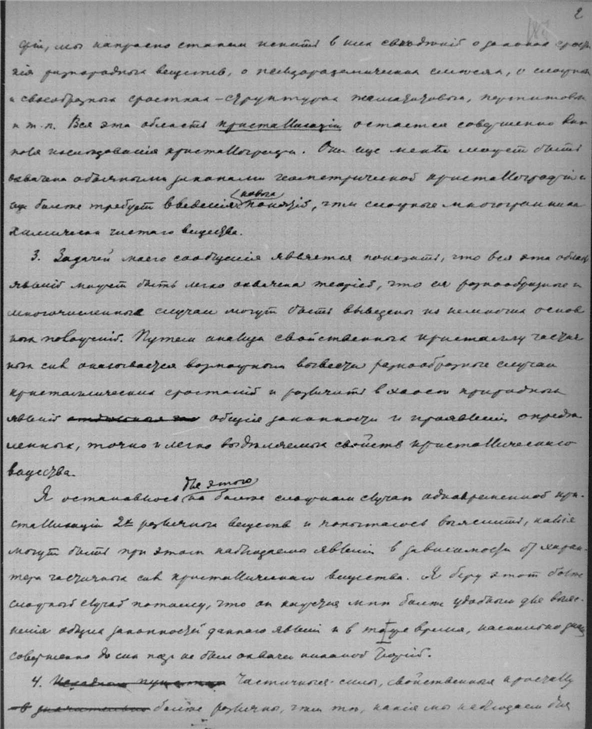 2
мы напрасно станем искать в них сведений о законах
разнородных веществ, о псевдорадиических смесях, о
и своеобразных сростках - структурах
и т. п. Вся эта область кристаллизации остается совершенно вне
поля исследования кристаллографии. Они еще менѣе могутъ быть
охвачена обычными законами геометрической кристаллографии и
еще болѣе требуетъ введения новых понятій, чѣм сложные многогранники
химически чистаго вещества.
3. Задачей моего сообщения является показать, что вся эта область
явленій может быть легко охвачена теоріей, что ея разнообразные и
многочисленные случаи могутъ быть выведены из немногих основных
положений. Путем анализа свойственных кристаллу частичных
сил оказывается возможным вывести разнообразные случаи
кристаллических сростаній и различить в хаосе природных
явленій общіе законности и проявленія опредѣ
ленных, точно и легко выдѣляемых свойств кристаллического
вещества.
для этого
Я остановлюсь на болѣе сложном случаѣ одновременной кри-
сталлизаціи 2х различных веществ и попытаюсь выяснить, какія
могутъ быть при этом наблюдаемы явленія в зависимости от харак-
тера частичных сил кристаллического вещества. Я беру этот болѣе
сложный случай потому, что он кажется мнѣ болѣе удобным для выяс-
ненія общих законностей данного явленія и в то же время, насколько знаю,
совершенно до сих пор не был охвачен никакой теоріей.
4. Исходным пунктом частичные силы, свойственные кристаллу
в значительно болѣе различны, чѣм тѣ, какія мы наблюдаем для